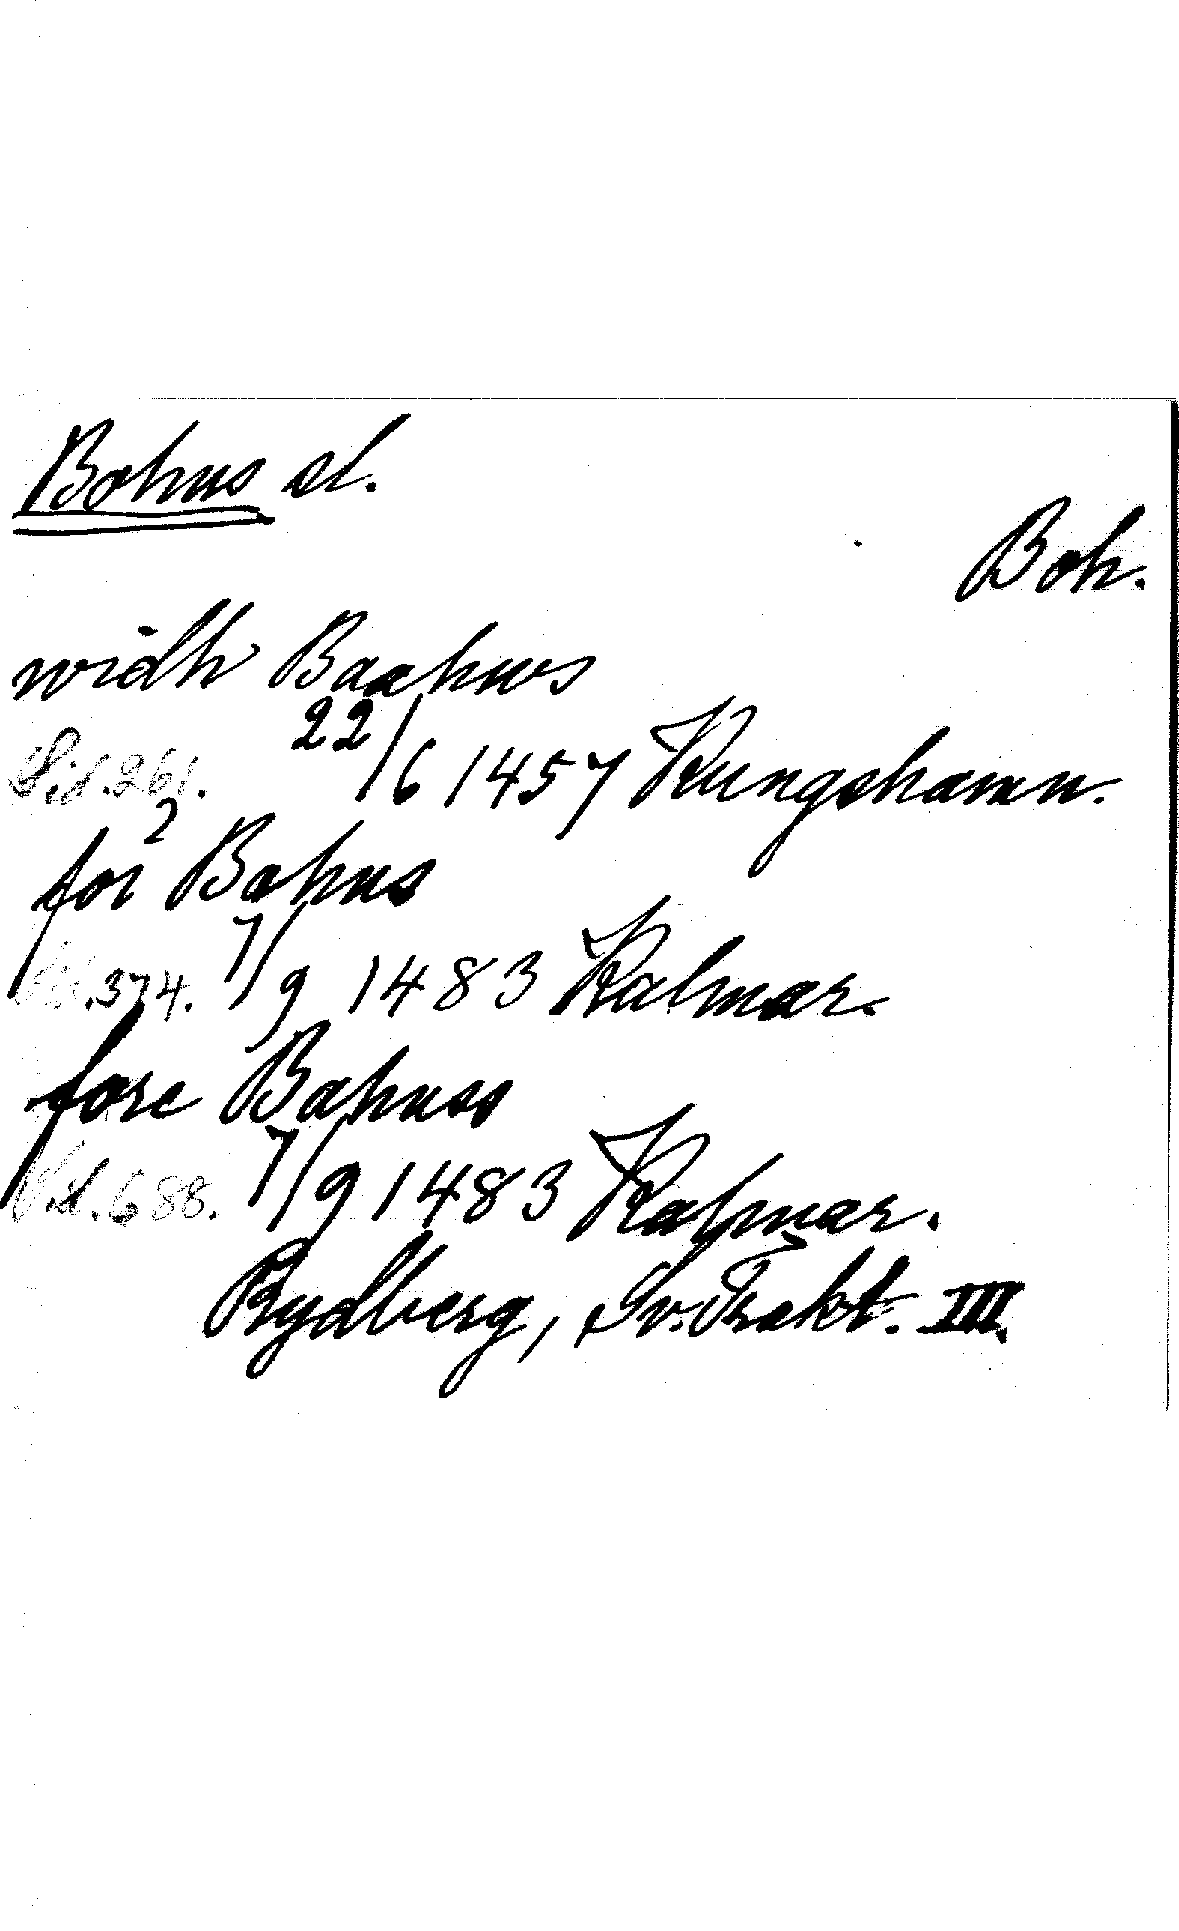 Bohus sl.
Boh.
widh Baahws
Sid. 261. 22/6 1457 Kungshamn.
for2 Bahus
Sid. 374. 7/9 1483 Kalmar.
fore Bahuss
Sid. 688. 7/9 1483 Kalmar.
Rydberg, Sv. Trakt. III.